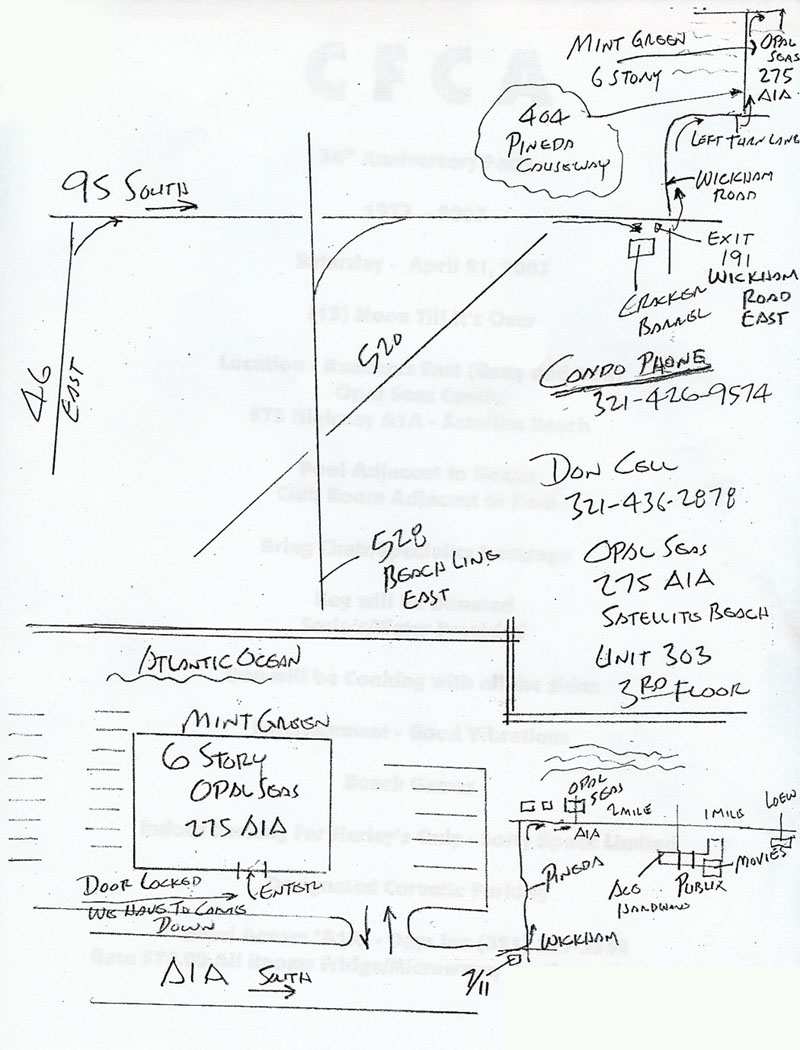 MINT GREEN
6 STORY
OPAL
SEAS
275
A1A
404
PINEDA
CAUSEWAY
LEFT TURN LANE
WICKHAM
ROAD
95 SOUTH
EXIT
191
WICKHAM
ROAD
EAST
CRACKER
BARREL
46
EAST
520
CONDO PHONE
321-426-9574
DON CELL
321-436-2878
528
BEACH LINE
EAST
OPAL SEAS
275 A1A
SATELLITE BEACH
UNIT 303
3RD FLOOR
ATLANTIC OCEAN
MINT GREEN
6 STORY
OPAL SEAS
275 A1A
DOOR LOCKED
ENTER
WE HAVE TO COME
DOWN
A1A SOUTH
OPAL
SEAS
2 MILE
1 MILE
A1A
PINEDA
ACE
HARDWARE
PUBLIX
MOVIES
WICKHAM
7/11
CFCA
30th Anniversary
Saturday - April 21, 2007
(12) Noon Till It's Over
Opal Seas Condo
275 Highway A1A - Satellite Beach
Pool Adjacent to Ocean
Club Room Adjacent to Pool
will be Cooking with all the sides
Good Vibrations
Beach Games
For Harley's Only
Corvette Parking
All Rooms Fridge/Microwave